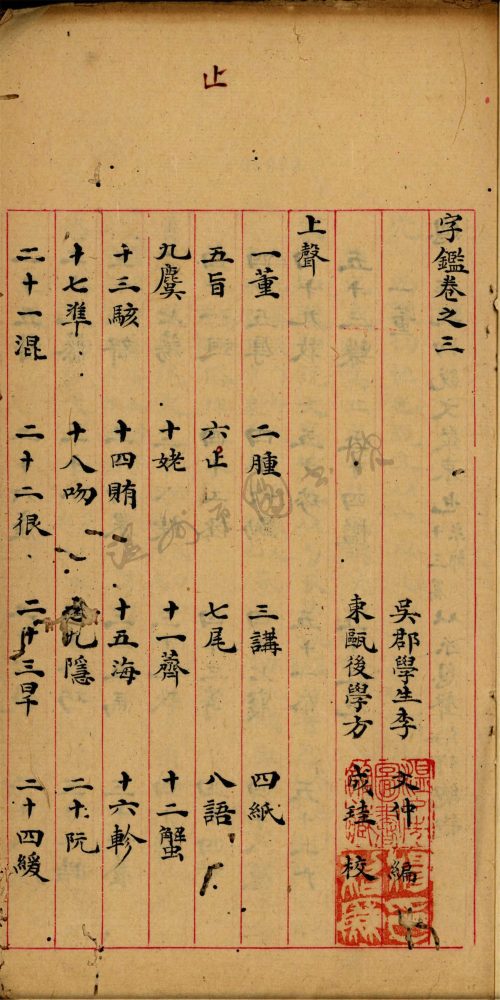 止
字鑑卷之三
吳郡學生李文仲編
東甌後學方成珪校
上聲
一董 二腫 三講 四紙
五旨 六止 七尾 八語
九麌 十姥 十一薺 十二蟹
十三駭 十四賄 十五海 十六軫
十七準 十八吻 隱 二十阮
二十一混 二十二很 二十三旱 二十四緩